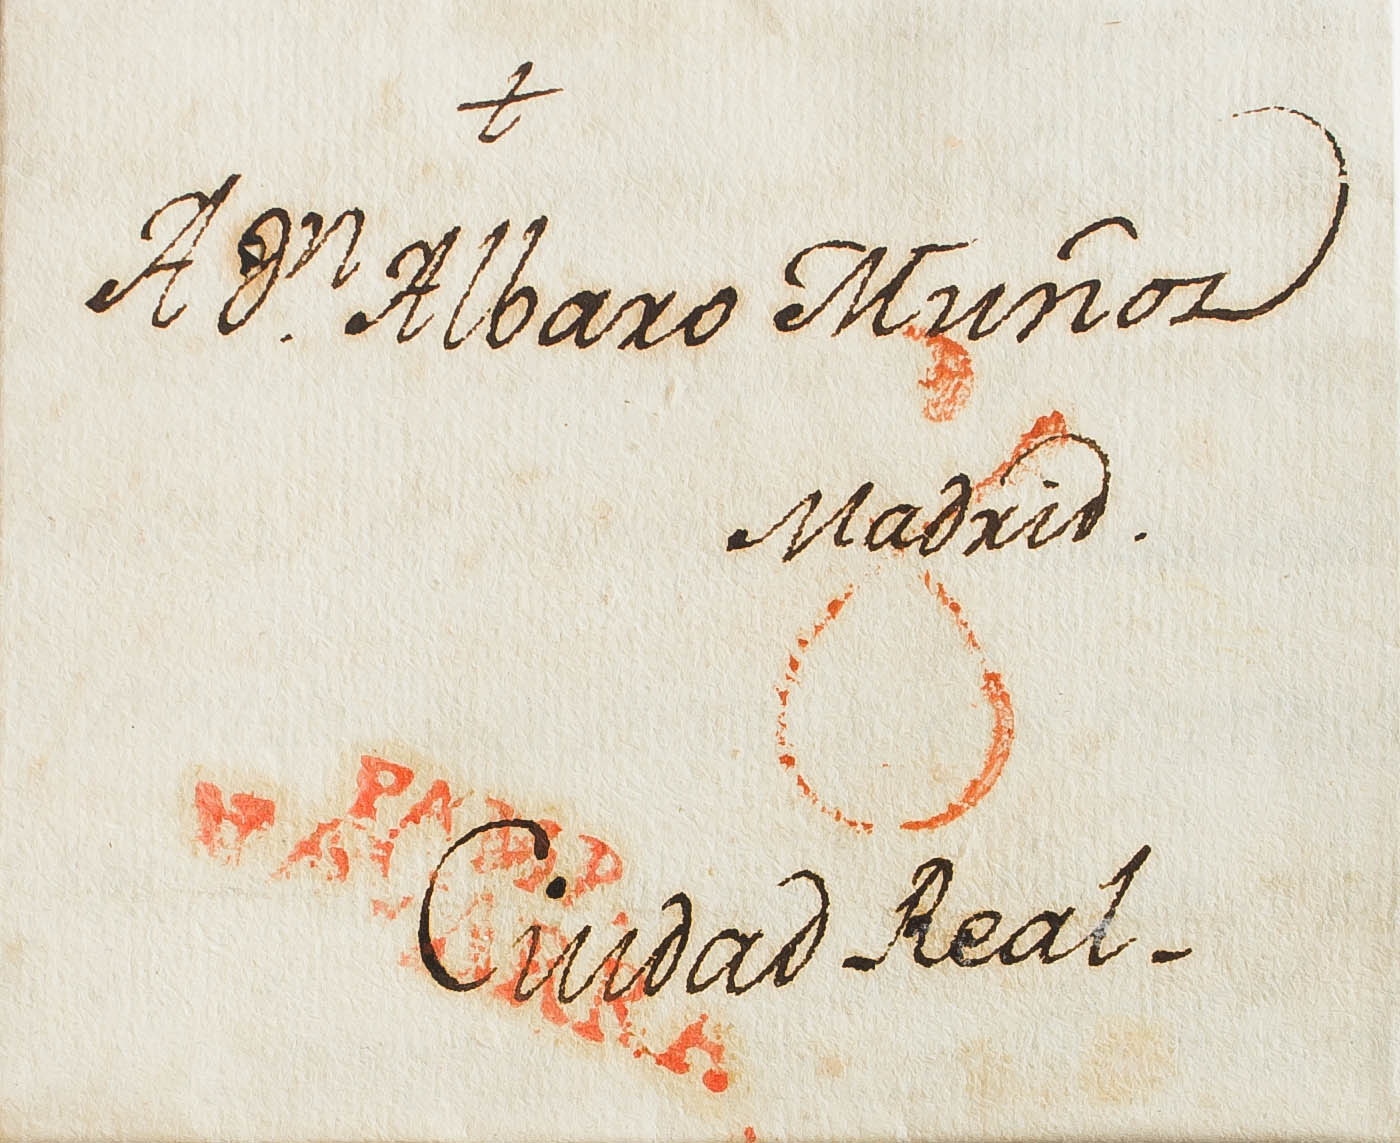 A Dn. Albaro Muñoz
Madrid.
Ciudad Real-